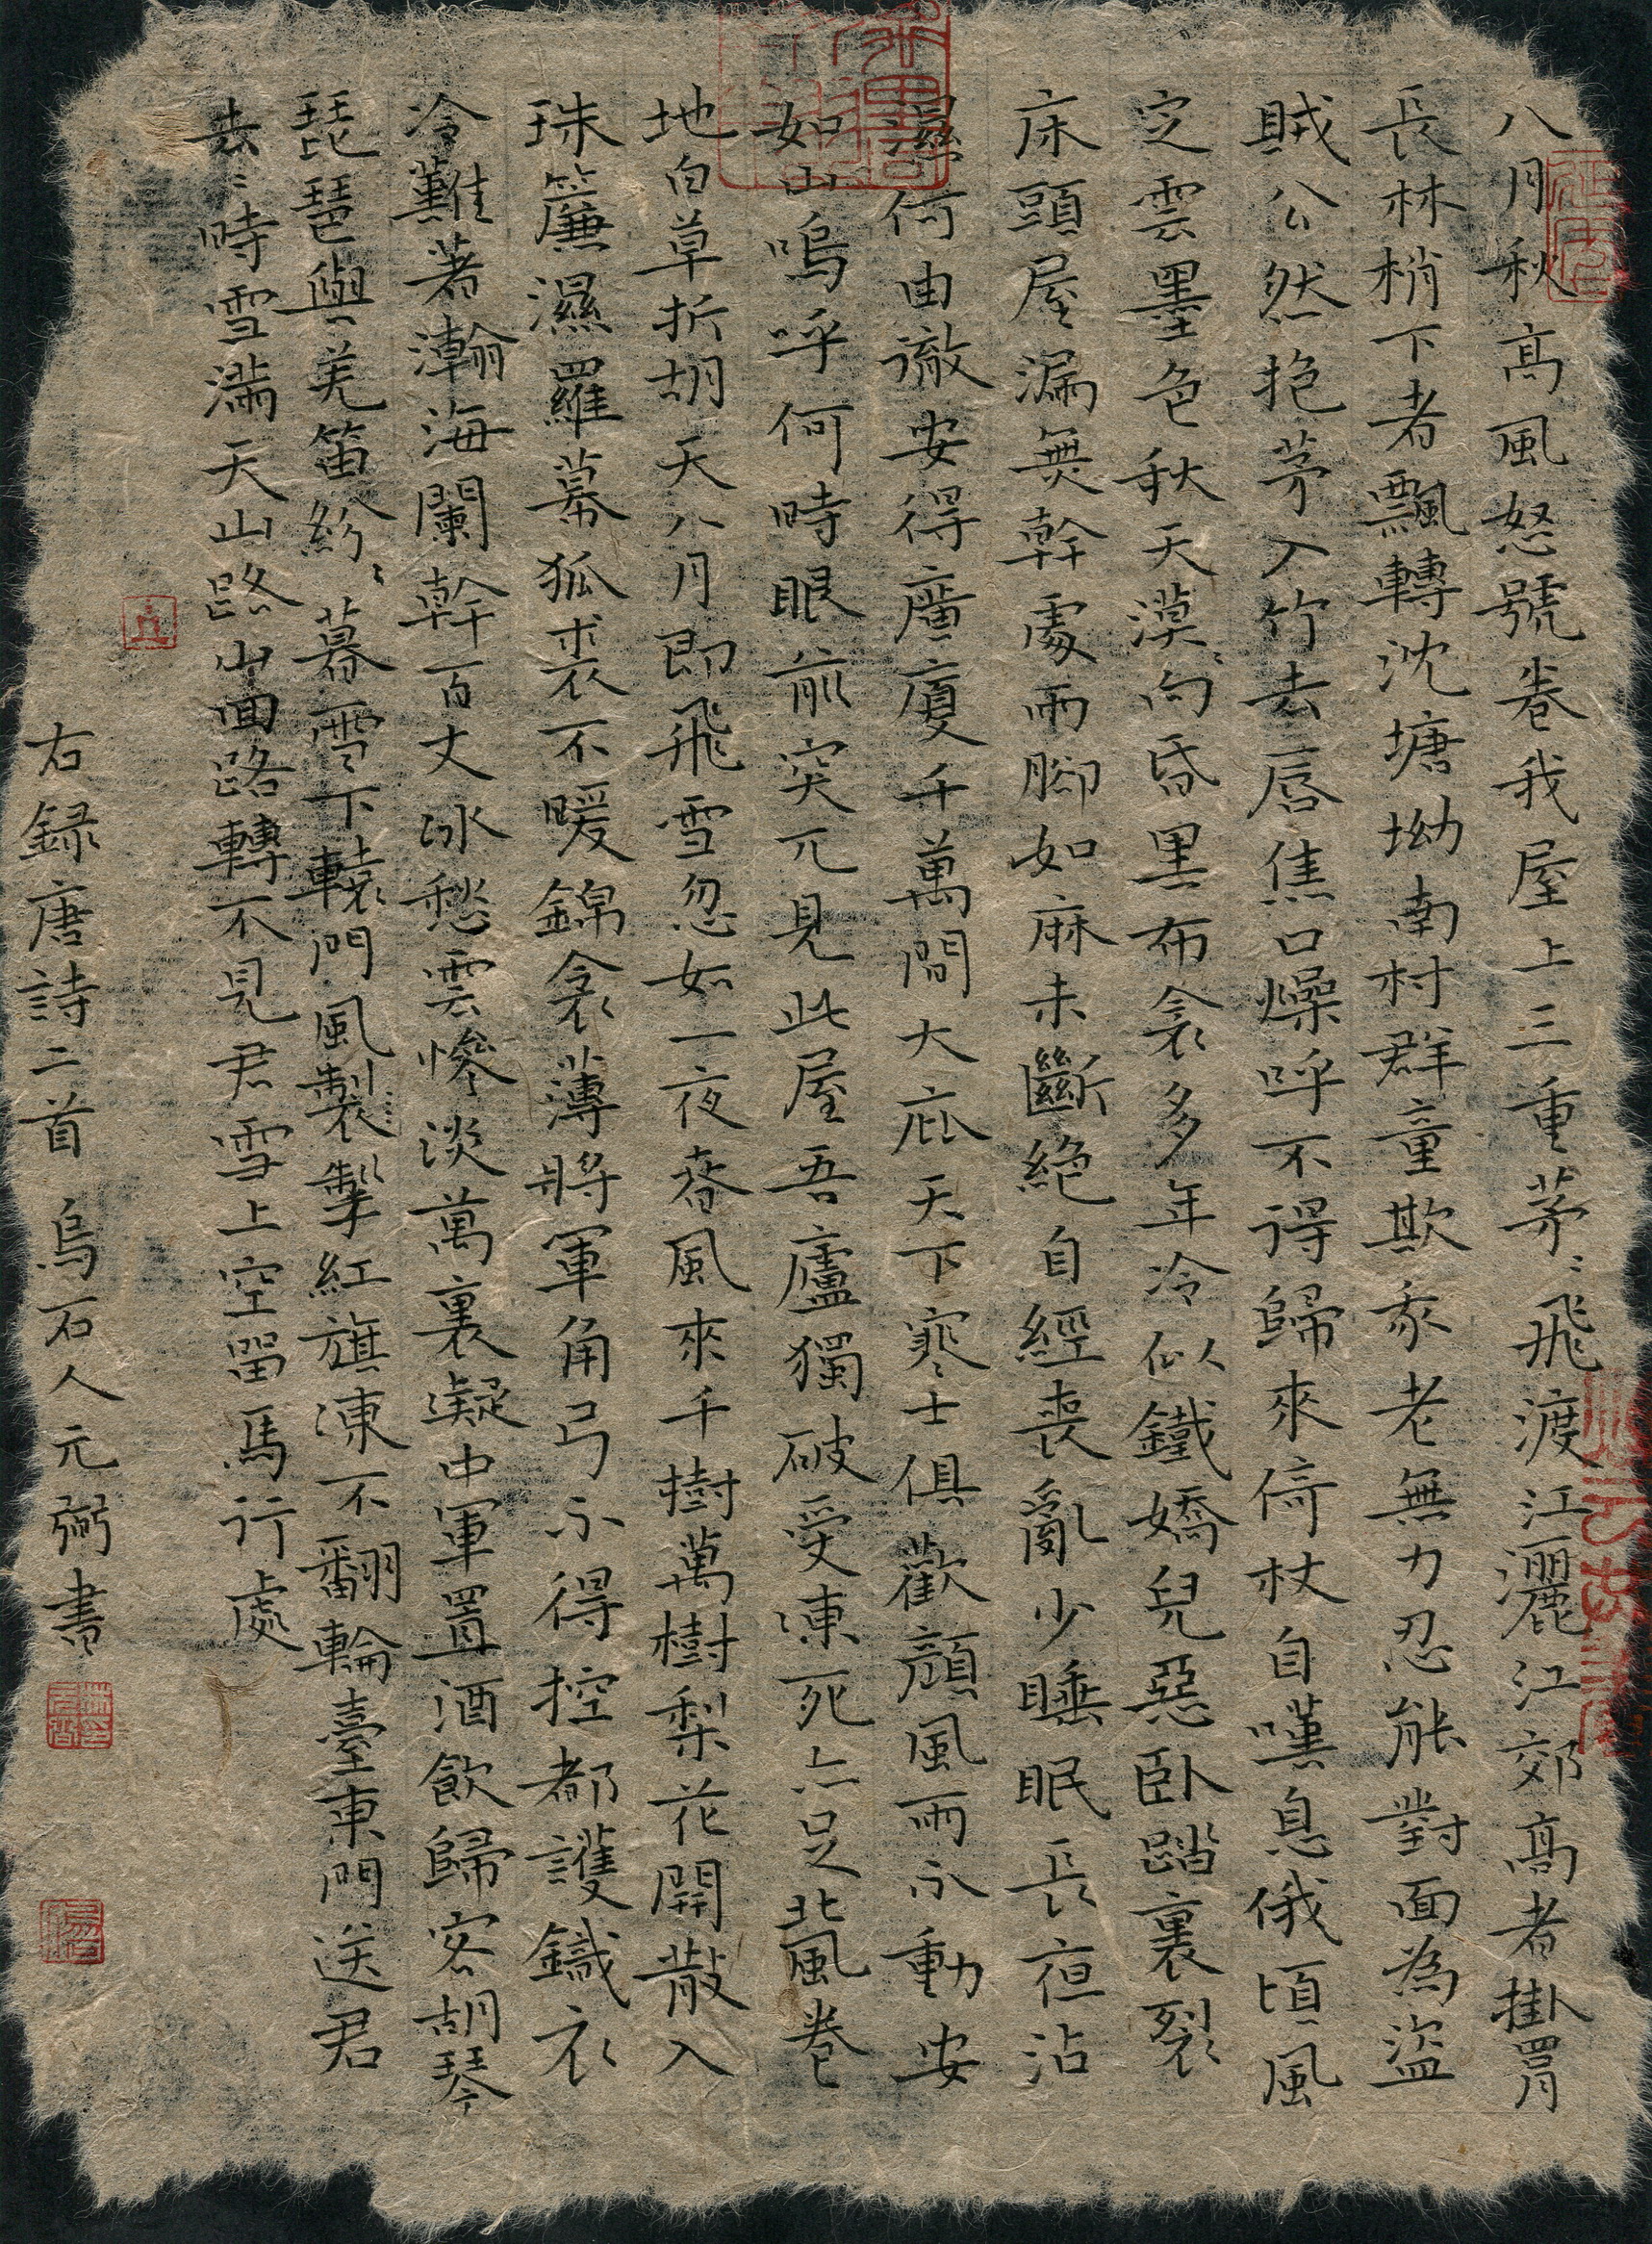 八月秋高風怒號卷我屋上三重茅〻飛渡江灑江郊高者掛罥
長林梢下者飄轉沈塘坳南村群童欺我老無力忍能對面為盜
賊公然抱茅入竹去唇焦口燥呼不得歸來倚杖自嘆息俄頃風
定雲墨色秋天漠〻向昏黑布衾多年冷似鐵嬌兒惡臥踏裏裂
床頭屋漏無幹處雨腳如麻未斷絕自經喪亂少睡眠長夜沾
濕何由徹安得廣廈千萬間大庇天下寒士俱歡顏風雨不動安
如山嗚呼何時眼前突兀見此屋吾廬獨破受凍死亦足北風卷
地白草折胡天八月即飛雪忽如一夜春風來千樹萬樹梨花開散入
珠簾濕羅幕狐裘不暖錦衾薄將軍角弓不得控都護鐵衣
冷難著瀚海闌幹百丈冰愁雲慘淡萬裏凝中軍置酒飲歸客胡琴
琵琶與羌笛紛〻暮雪下轅門風製掣紅旗凍不翻輪臺東門送君
去〻時雪滿天山路山回路轉不見君雪上空留馬行處
右録唐詩二首 烏石人元弼書